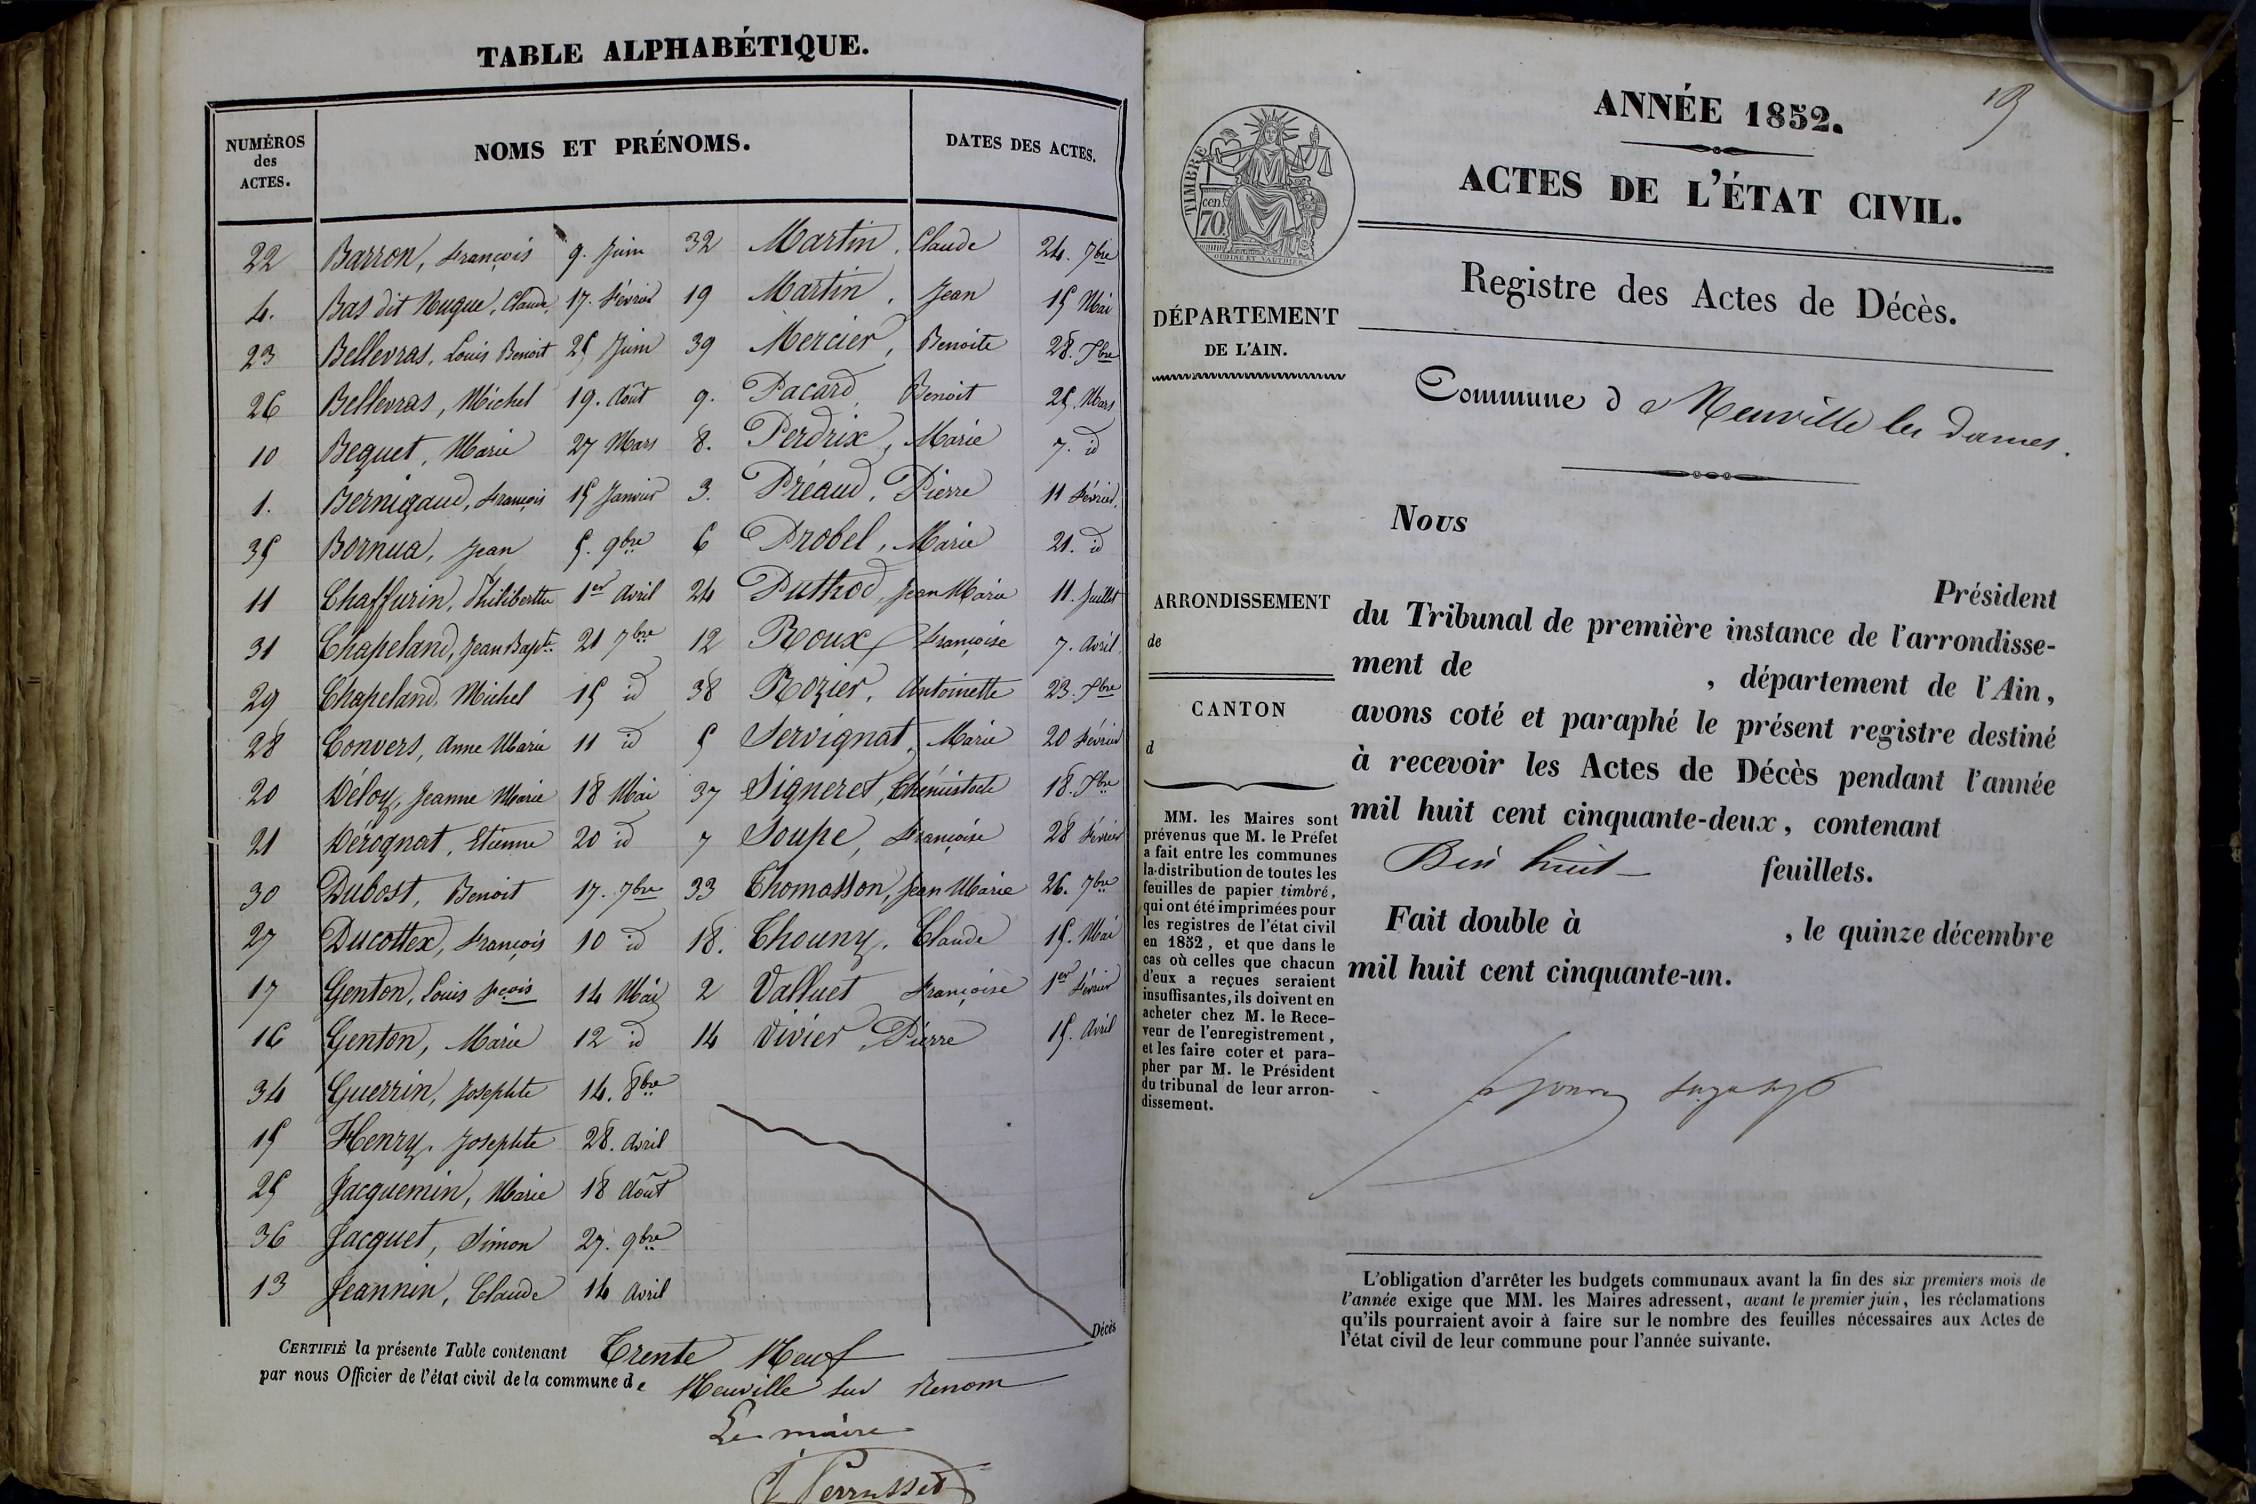 TABLE ALPHABÉTIQUE.
NUMÉROS des ACTES.
NOMS ET PRÉNOMS.
DATES DES ACTES.
22 Barron, François 9. Juin 32 Martin, Claude 24. 7bre
4. Bas dit Nugue, Claude, 17. Février 19 Martin, Jean 15 Mai
23 Bellevras, Louis Benoit 25 Juin 39 Mercier, Benoite 28. Xbre
26 Bellevras, Michel 19. Août 9. Pacard, Benoit 25. Mars
10 Bequet, Marie 27 Mars 8. Perdrix, Marie 7. id
1. Bernigaud, François 15 Janvier 3. Préaud, Pierre 11 Février.
35 Bornua, Jean 5. 9bre 6 Probel, Marie 21. id
11 Chaffurin, Philiberthe 1er Avril 24 Puthod, Jean Marie 11. Juillet
31 Chapeland, Jean Bapte. 21 7bre 12 Roux, Françoise 7. Avril
29 Chapeland, Michel 15 id 38 Rozier, Antoinette 23. Xbre
28 Convers, Anne Marie 11 id 5 Servignat, Marie 20 Février
20 Déloy, Jeanne Marie 18 Mai 37 Signeret, Thémistocle 18. Xbre
21 Dérognat, Etienne 20 id 7 Soupe, Françoise 28 Février
30 Dubost, Benoit 17. 7bre 33 Thomasson, Jean Marie 26. 7bre
27 Ducottex, François 10 id 18. Thouny, Claude 15. Mai
17 Genton, Louis fçois 14 Mai 2 Valluet Françoise 1er Février
16 Genton, Marie 12 id 14 Vivier, Pierre 15. Avril
34 Guerrin, Josephte 14. 8bre
15 Henry, Josephte 28. Avril
25 Jacquemin, Marie 18 Août
36 Jacquet, Simon 27. 9bre
13 Jeannin, Claude 14 Avril
Décès
CERTIFIÉ la présente Table contenant Trente Neuf
par nous Officier de l'état civil de la commune de Neuville sur Renom
Le maire
Perrusset
ANNÉE 1852.
19
ACTES DE L'ÉTAT CIVIL.
TIMBRE
cen
70
OUDINE ET VAUTHIER
Registre des Actes de Décès.
DÉPARTEMENT
DE L'AIN.
Commune de Neuville les dames.
Nous
Président
du Tribunal de première instance de l'arrondisse-
ment de , département de l'Ain,
avons coté et paraphé le présent registre destiné
à recevoir les Actes de Décès pendant l'année
mil huit cent cinquante-deux, contenant
huit feuillets.
Fait double à , le quinze décembre
mil huit cent cinquante-un.
ARRONDISSEMENT
de
CANTON
d
MM. les Maires sont
prévenus que M. le Préfet
a fait entre les communes
la distribution de toutes les
feuilles de papier timbré,
qui ont été imprimées pour
les registres de l'état civil
en 1852, et que dans le
cas où celles que chacun
d'eux a reçues seraient
insuffisantes, ils doivent en
acheter chez M. le Rece-
veur de l'enregistrement,
et les faire coter et para-
pher par M. le Président
du tribunal de leur arron-
dissement.
L'obligation d'arrêter les budgets communaux avant la fin des six premiers mois de
l'année exige que MM. les Maires adressent, avant le premier juin, les réclamations
qu'ils pourraient avoir à faire sur le nombre des feuilles nécessaires aux Actes de
l'état civil de leur commune pour l'année suivante.